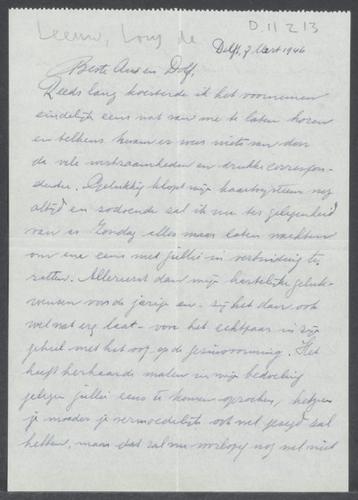 Leeuw, Lous de
D 11 2 13
Delft, 7 Maart 1946
Beste Ans en Dolf,
Reeds lang koesterde ik het voornemen
eindelijk eens wat van me te laten horen
en telkens kwam er weer niets van door
de vele werkzaamheden en drukke correspon-
dentie. Gelukkig klopt mijn kaartsysteem nog
altijd en zodoende zal ik nu ter gelegenheid
van as Zondag alles maar laten wachten
om me eens met jullie in verbinding te
zetten. Allereerst dan mijn hartelijke geluk-
wensen voor de jarige en - zij het dan ook
wel wat erg laat - voor het echtpaar in zijn
geheel met het oog op de gezinsvorming. Het
heeft herhaalde malen in mijn bedoeling
gelegen jullie eens te komen opzoeken, hetgeen
je moeder je vermoedelijk ook wel gezegd zal
hebben, maar dat zal nu voorlopig nog wel niet